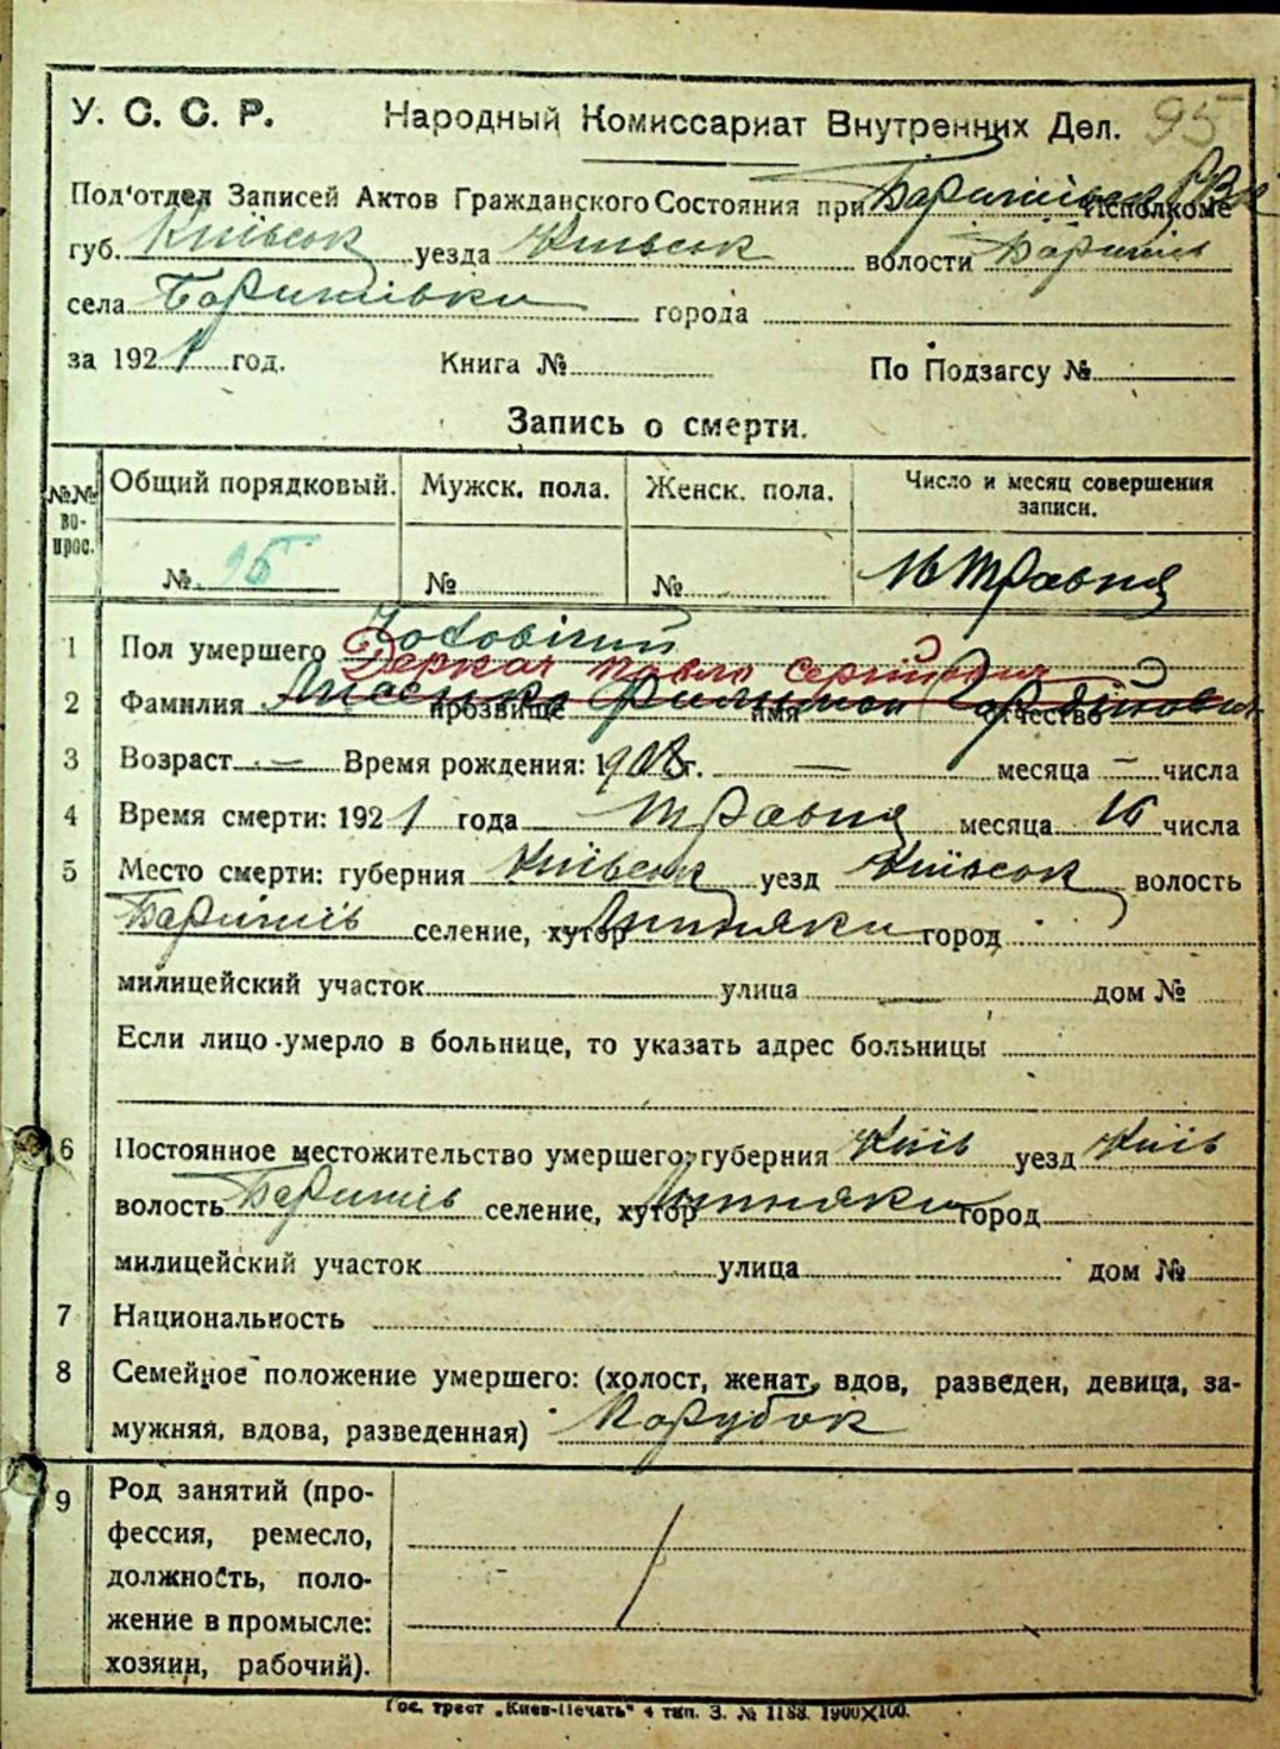 У. С. С. Р. Народный Комиссариат Внутренних Дел. 95
Под'отдел Записей Актов Гражданского Состояния при Исполкоме
губ. Київськ уезда Київськ волости Баришів
села Баришівки города
за 1921 год. Книга № По Подзагсу №
Запись о смерти.
№№ во-прос. Общий порядковый. Мужск. пола. Женск. пола. Число и месяц совершения записи.
№ 95 № № 16 Травня
1 Пол умершего Чоловічий
Деркач Павло Сергійович
2 Фамилия прозвище Филимон имя Гордійович отчество
3 Возраст — Время рождения: 1903 г. — месяца — числа
4 Время смерти: 1921 года травня месяца 16 числа
5 Место смерти: губерния Київськ уезд Київськ волость
Баришів селение, хутор город
милицейский участок улица — дом №
Если лицо умерло в больнице, то указать адрес больницы
6 Постоянное местожительство умершего: губерния Київ уезд Київ
волость Баришів селение, хутор город
милицейский участок улица дом №
7 Национальность
8 Семейное положение умершего: (холост, женат, вдов, разведен, девица, за-
мужняя, вдова, разведенная) Парубок
9 Род занятий (про-
фессия, ремесло,
должность, поло-
жение в промысле:
хозяин, рабочий).
Гос. трест „Киев-Печать" 4 тип. З. № 1188. 1900X100.